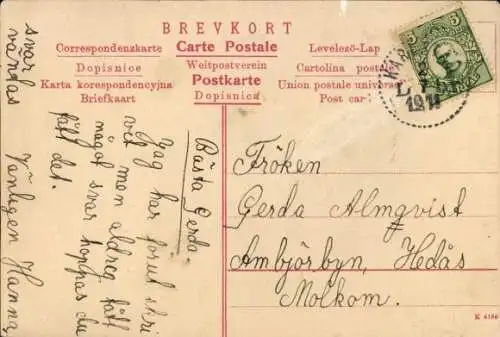 BREVKORT
Correspondenzkarte Carte Postale Levelező-Lap
Dopisnice Weltpostverein Cartolina posta
Karta korespondencyjna Postkarte Union postale univers
Briefkaart Dopisnica Post car
5 5
1911
Bästa Gerda.
Jag har förut skri
vit men aldrig fått
något svar hoppas du
fått det.
Vänligen Hanna,
svar
väntas
Fröken
Gerda Almqvist
Ambjörbyn, Hedås
Molkom.
K 4186